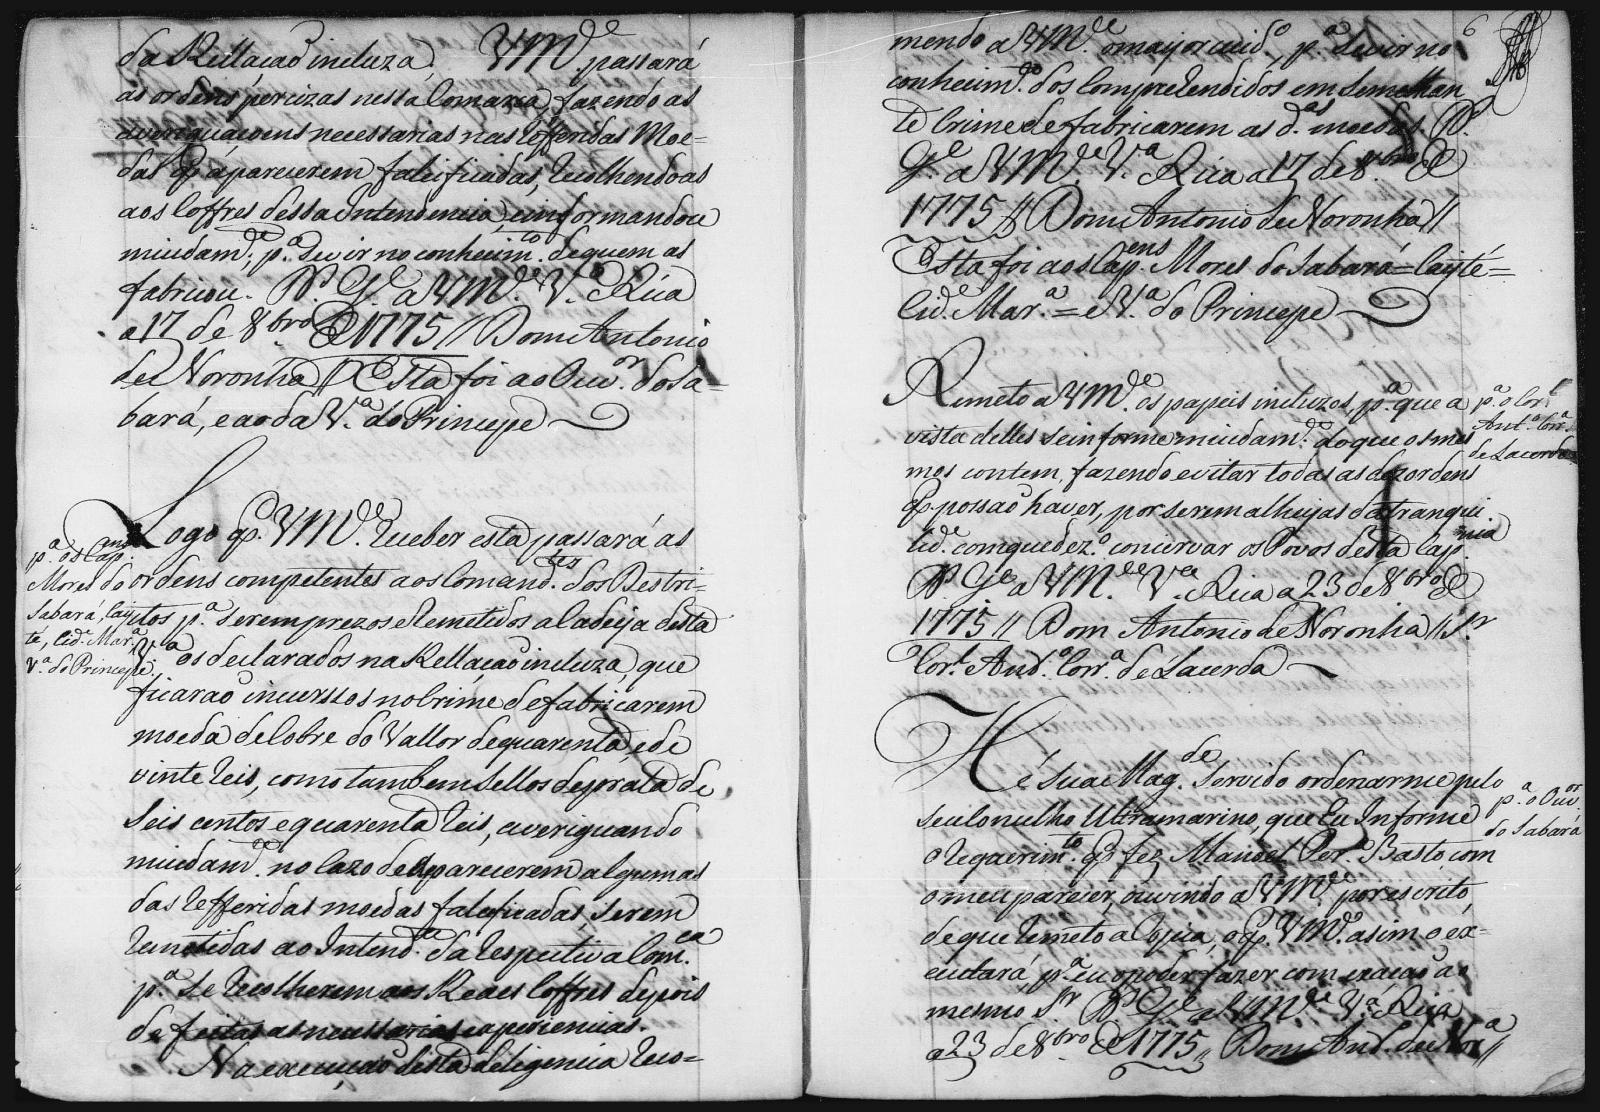 da Rellaçaõ incluza, VMᶜᵉ. passará
as ordens percizas nessa Comarca, fazendo as
averiguaçoens necessarias nas refferidas Moe=
das q̃ áparecerem falcificadas, recolhendo as
aos Coffres dessa Intendencia, einformandome
miudamᵗᵉ. pᵃ. Se vir no conhecimᵗᵒ. de quem as
fabricou. Dˢ. Gᵉ. a VMᶜᵉ. Vᵃ. Rica
a 17 de 8ᵇʳᵒ de 1775 // Dom Antonio
de Noronha // Esta foi ao Ouvᵒʳ. do Sa=
bará, e ao da Vᵃ. do Principe
pᵃ. os Cap.ᵉⁿˢ
Mores do
Sabará, Cayte
té, Cidᵉ. Marᵃ.
Vᵃ. do Principe.
Logo q̃. VMᶜᵉ. receber esta passará as
ordens competentes aos Comandᵗᵉˢ. dos Destri=
ctos pᵃ. serem prezos eremetidos a Cadeya desta
Vᵃ os declarados na Rellaçaõ incluza, que
ficaraõ incurssos no Crime de fabricarem
moeda de Cobre do Vallor de quarenta, e de
vinte reis, como tambem Sellos de prata de
Seis centos e quarenta reis, averiguando
miudamᵗᵉ. no cazo de Aparecerem algumas
das refferidas moedas falcificadas, serem
remetidas ao Intendᵗᵉ. da respectiva Comᶜᵃ.
pᵃ. Se recolherem aos Reaes Coffres depois
de feitas as necessarias experiencias.
Na execuçaõ desta deligencia reco=
6
mendo a VMᶜᵉ. o mayor cuidᵒ, pᵃ. Se vir no
conhecimᵗᵒ. dos Compretendidos em Semelhan
te Crime de fabricarem as dᵃˢ. moedas. Dˢ.
Gᵉ. a VMᶜᵉ. Vᵃ. Rica a 17 de 8ᵇʳᵒ de
1775 // Dom Antonio de Noronha //
Esta foi aos Cap.ᵉⁿˢ Mores do Sabará = Cayté =
Cidᵉ. Marᵃ. = e Vᵃ. do Principe
pᵃ. o Corˡ
Antᵒ. Corᵃ.
de Lacerda
Remeto a VMᶜᵉ. os papeis incluzos, pᵃ. que a
vista delles se informe miudamᵗᵉ. do que os mes
mos contem, fazendo evitar todas as dezordens
q̃ possaõ haver, por serem alheyas da tranqui
lidᵉ. com que dezᵒ. concervar os Povos desta Capⁿⁱᵃ.
Dˢ. Gᵉ a VMᶜᵉ. Vᵃ. Rica a 23 de 8ᵇʳᵒ de
1775 // Dom Antonio de Noronha // Sʳ
Corˡ. Antᵒ. Corᵃ. de Lacerda
pᵃ. o Ouvᵒʳ.
do Sabará
Hé Sua Magᵈᵉ. Servido ordenarme pelo
seu Concelho Ultramarino, que Eu Informe
o requerimᵗᵒ. q̃ fez Manoel Perᵃ. Basto, com
o meu parecer, ouvindo a VMᶜᵉ. por escrito,
de que remeto a Copia, o q̃. VMᶜᵉ. asim o éx=
ecutará pᵃ. eu o poder fazer com exacçaõ ao
mesmo Sʳ Dˢ. Gᵉ. a VMᶜᵉ Vᵃ. Rica
a 23 de 8ᵇʳᵒ de 1775 // Dom Antᵒ. de Norᵃ //